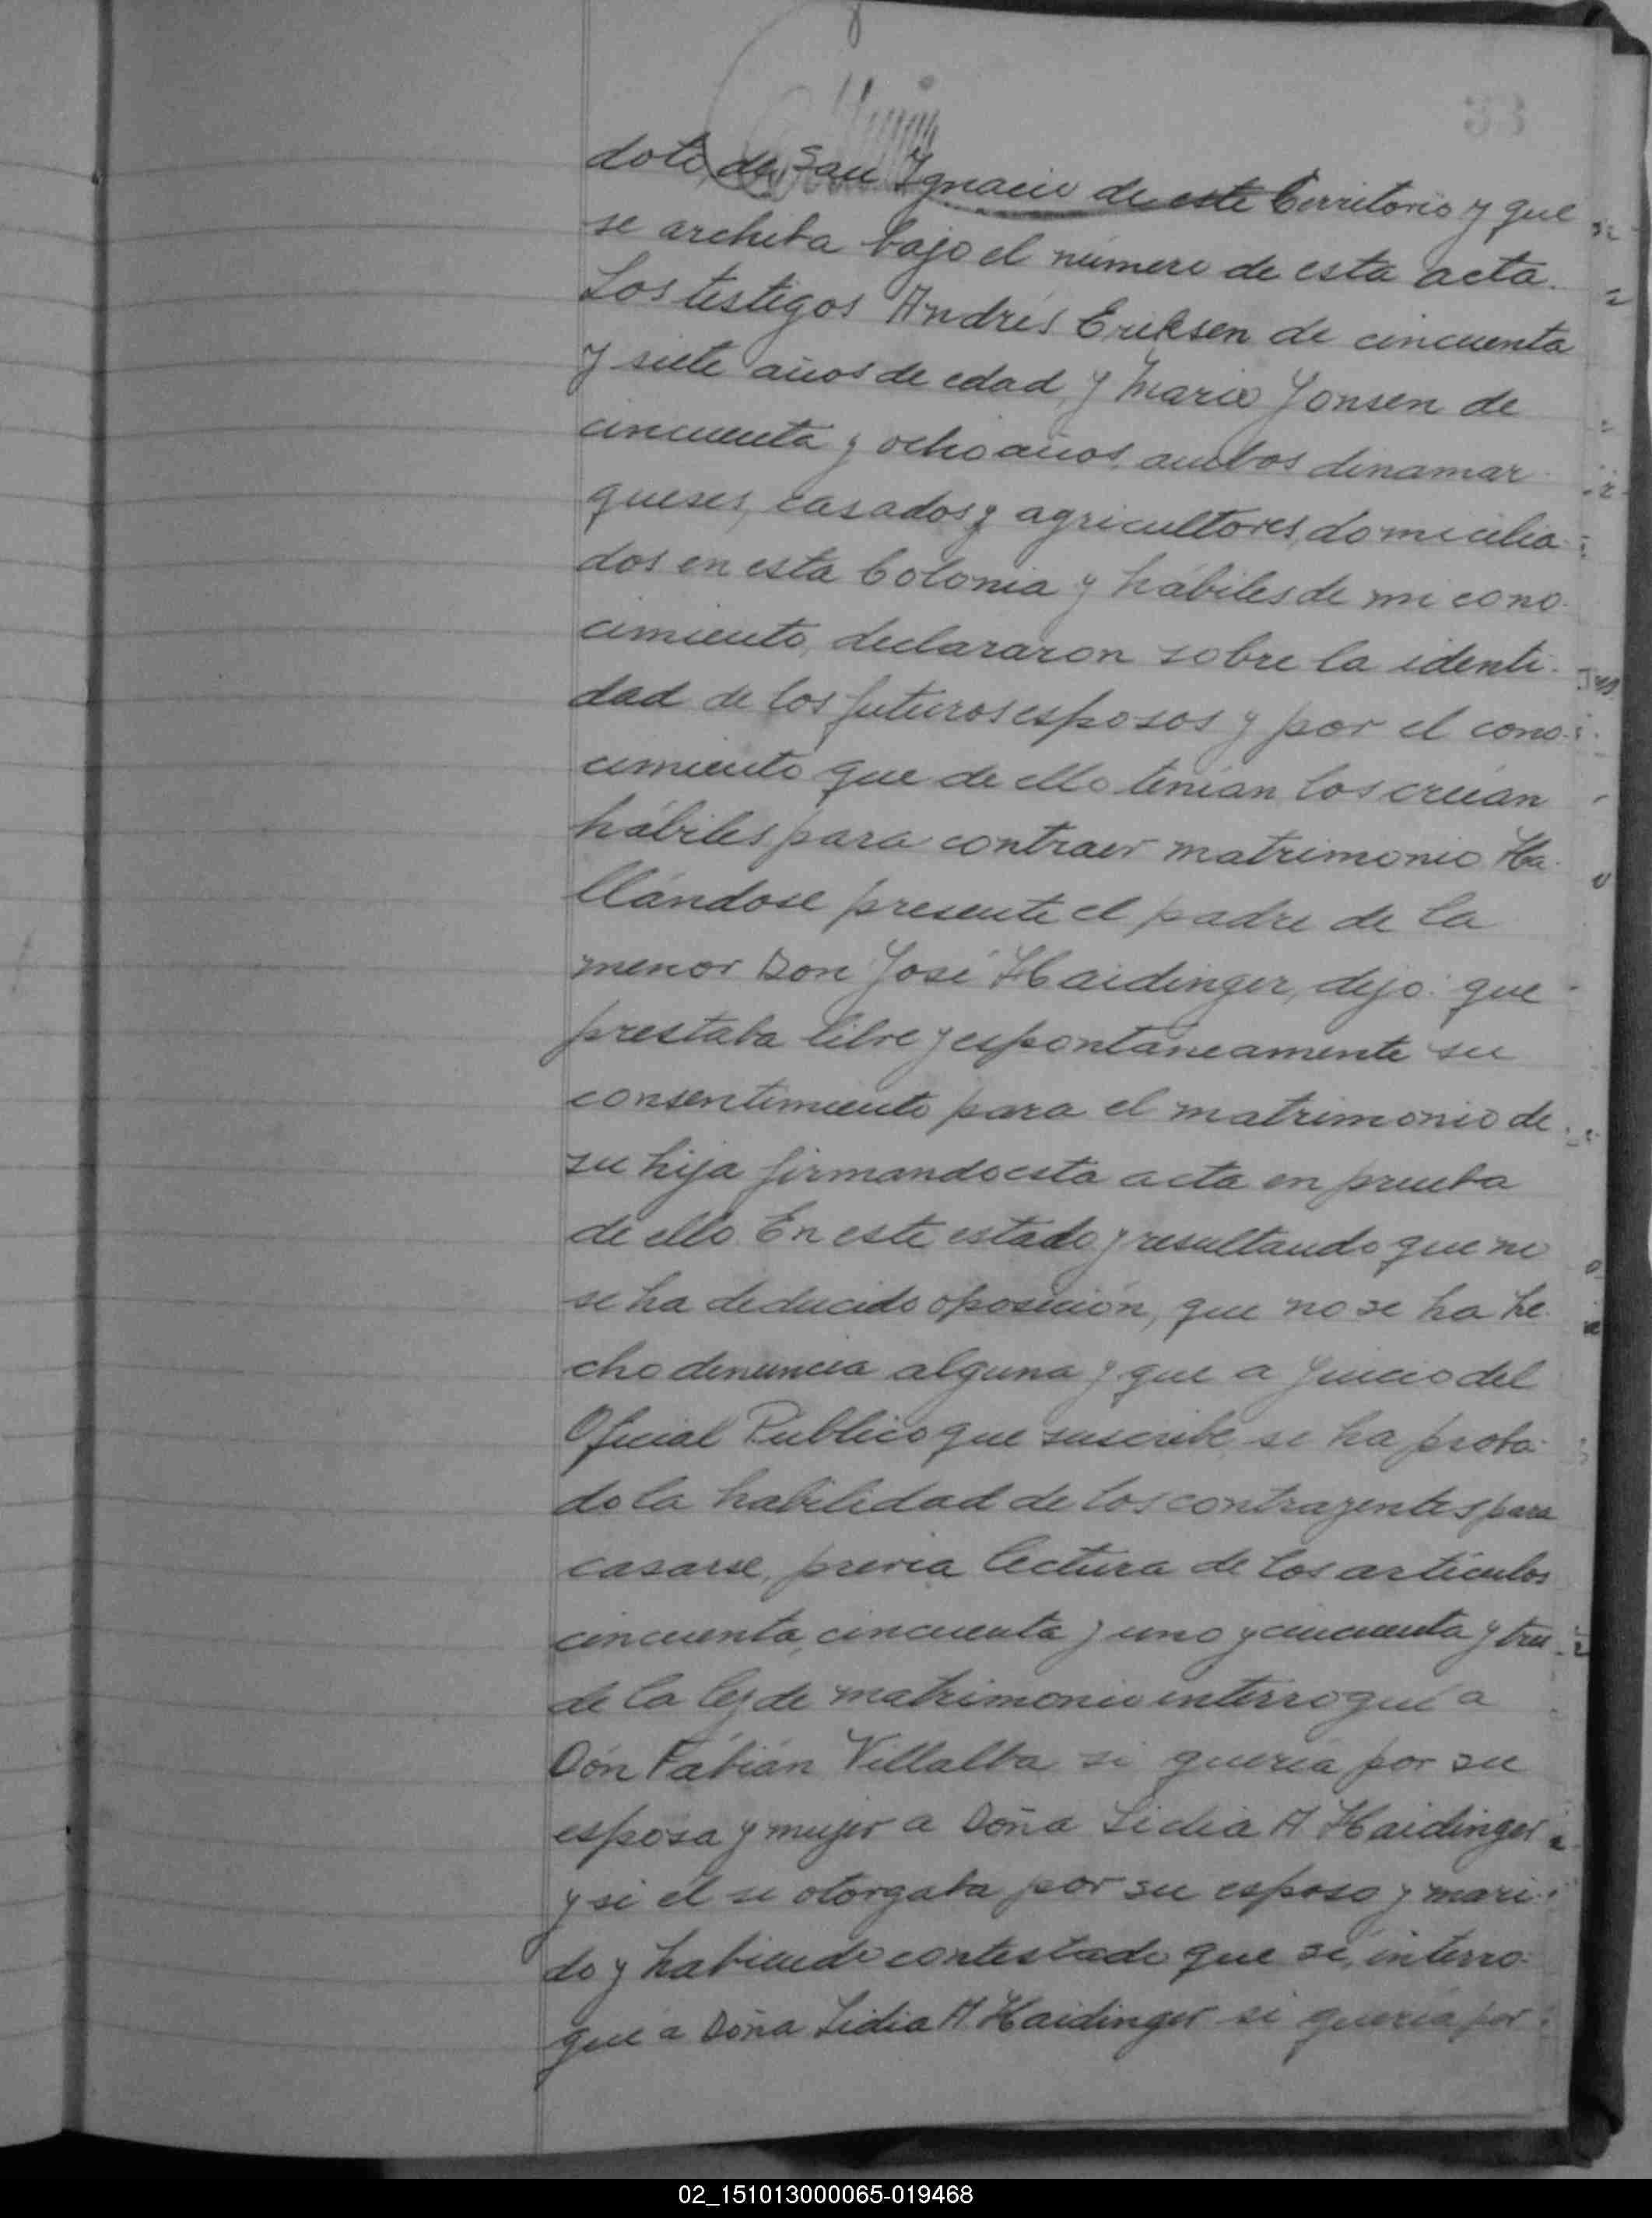 33
doti de San Ignacio de este Territorio y que
se archiba bajo el número de esta acta.
Los testigos Andrés Eriksen de cincuenta
y siete años de edad, y Mario Jonsen de
cincuenta y ocho años, ambos dinamar
queses, casados y agricultores, domicilia-
dos en esta Colonia y hábiles de mi cono-
cimiento, declararon sobre la identi-
dad de los futuros esposos y por el cono-
cimiento que de ello tenían los creían
hábiles para contraer matrimonio. Ha-
llándose presente el padre de la
menor Don José Haidinger, dijo: que
prestaba libre y espontáneamente su
consentimiento para el matrimonio de
su hija firmando esta acta en prueba
de ello. En este estado y resultando que no
se ha deducido oposición, que no se ha he-
cho denuncia alguna y que a juicio del
Oficial Público que suscribe, se ha proba-
do la habilidad de los contrayentes para
casarse, previa lectura de los artículos
cincuenta, cincuenta y uno y cincuenta y tres
de la ley de matrimonio interrogué a
Don Fabián Villalba si quería por su
esposa y mujer a Doña Lidia A Haidinger
y si él se otorgaba por su esposo y mari-
do y habiendo contestado que sí, interro-
gué a Doña Lidia A. Haidinger si quería por
02_151013000065-019468